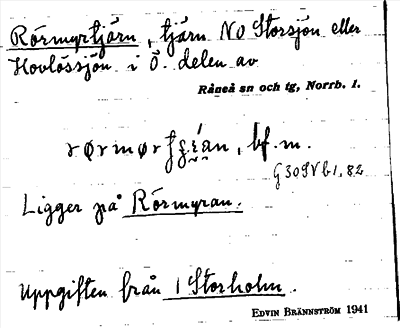 Rörmyrtjärn, tjärn NO Storsjön eller
Hovlössjön i Ö. delen av
Råneå sn och tg, Norrb. l.
bf. m.
Ligger på Rörmyran.
Uppgiften från 1 Storholm.
EDVIN BRÄNNSTRÖM 1941